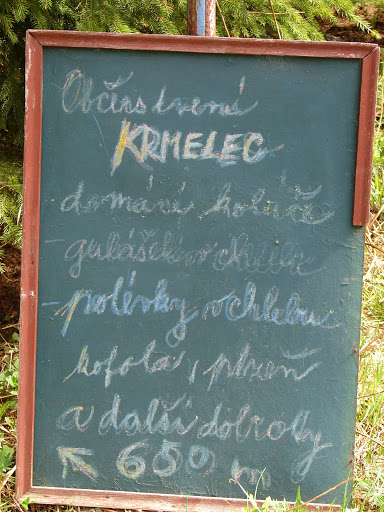 Občerstvení
KRMELEC
domácí koláče
- gulášek v chlebu
- polévky v chlebu
kofola, plzeň
a další dobroty
↖ 650 m